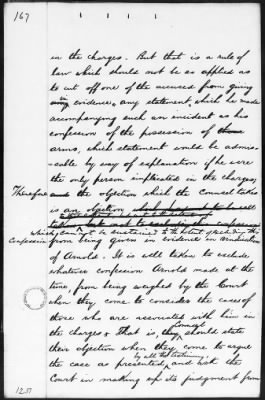 167
in the charges. But that is a rule of
law which should not be so applied as
to cut off one of the accused from giving
in evidence, any statement, which he made
accompanying such an incident as his
confession of the possession of those
arms, which statement would be admis-
-cable by way of explanation if he were
the only person implicated in the charges,
Therefore and the objection which the Counsel takes
is an objection which
which can be sustained to the extent of excluding this
Confession from being given in evidence in vindication
of Arnold. It is well taken to exclude
whatever confession Arnold made at the
time, from being weighed by the Court
when they come to consider the cases of
those who are associated with him in
the charges & That is, they Counsel should state
their objection when they come to argue
by all the testimony,
the case as presented, and ask the
Court in making up its judgment from
1217